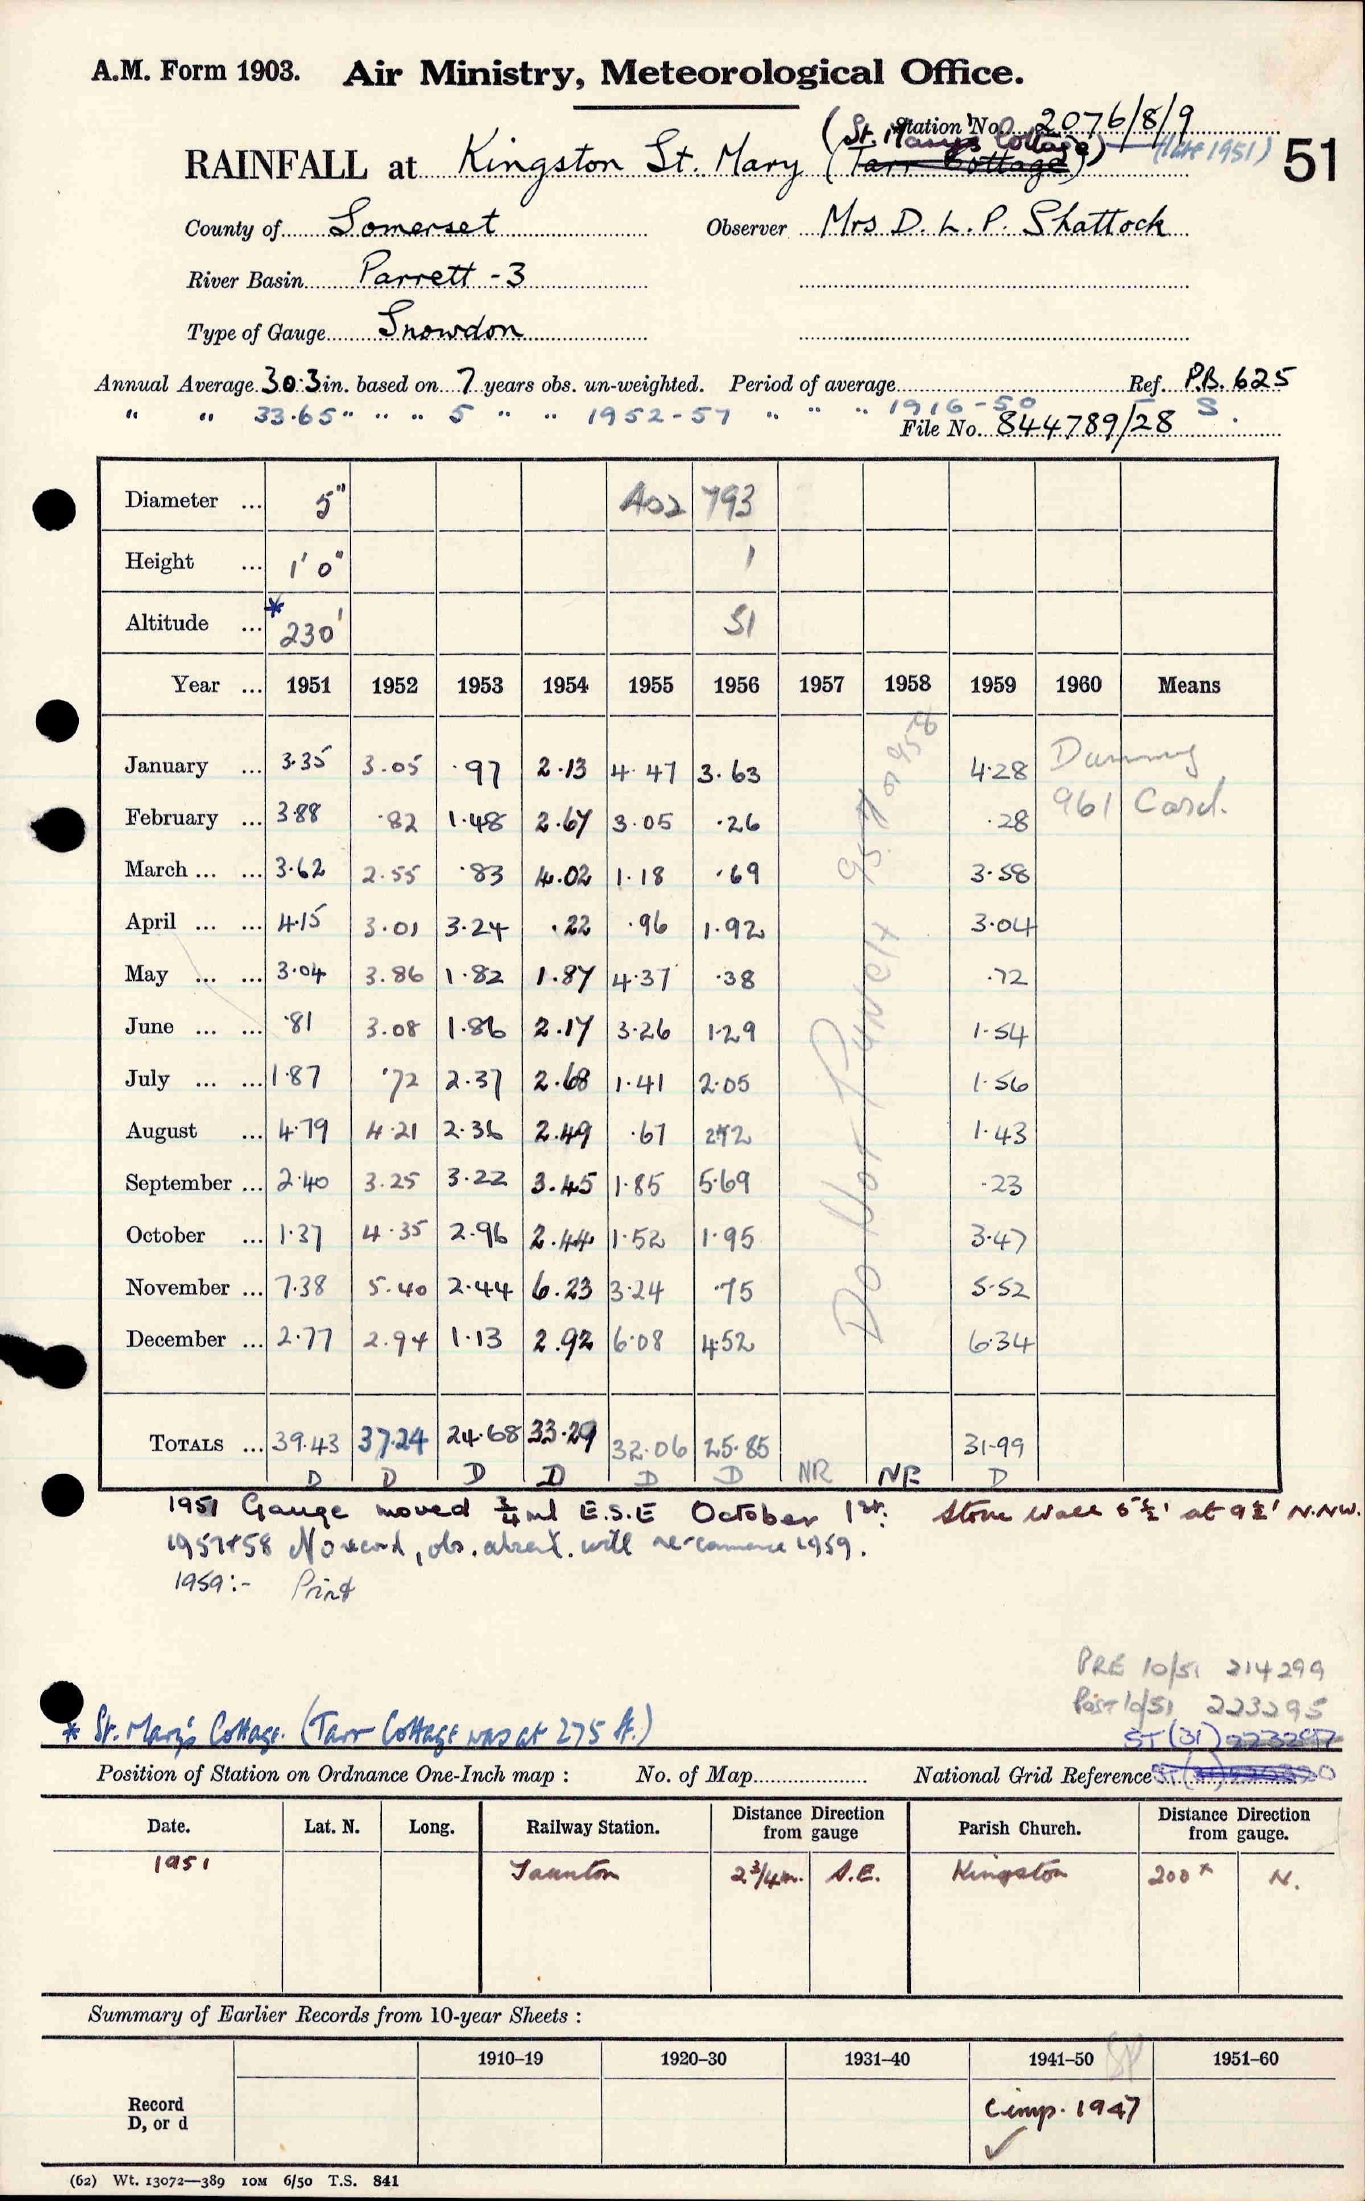 A.M. Form 1903. Air Ministry, Meteorological Office.
Station No. 2076/8/9
(St. Mary's Cottage) (late 1951)
RAINFALL at Kingston St. Mary (Tarr Cottage) 51
County of Somerset Observer Mrs D. L. P. Shattock
River Basin Parrett - 3
Type of Gauge Snowdon
Annual Average 30.3 in. based on 7 years obs. un-weighted. Period of average Ref. P.B. 625
" " 33.65 " " " 5 " " 1952-57 " " " 1916-50 S.
File No. 844789/28
Diameter ... 5" 793
Height ... 1' 0" 1
Altitude ... * 230' 51
Year ... 1951 1952 1953 1954 1955 1956 1957 1958 1959 1960 Means
January ... 3.35 3.05 .97 2.13 4.47 3.63 4.28 Dummy
February ... 3.88 .82 1.48 2.67 3.05 .26 .28 961 Card.
March ... ... 3.62 2.55 .83 4.02 1.18 .69 3.58
April ... ... 4.15 3.01 3.24 .22 .96 1.92 3.04
May ... ... 3.04 3.86 1.82 1.87 4.37 .38 .72
June ... ... .81 3.08 1.86 2.17 3.26 1.29 1.54
July ... ... 1.87 .72 2.37 2.68 1.41 2.05 1.56
August ... 4.79 4.21 2.36 2.49 .67 2.72 1.43
September ... 2.40 3.25 3.22 3.45 1.85 5.69 .23
October ... 1.37 4.35 2.96 2.44 1.52 1.95 3.47
November ... 7.38 5.40 2.44 6.23 3.24 .75 5.52
December ... 2.77 2.94 1.13 2.92 6.08 4.52 6.34
Do Not Punch 957 or 958
TOTALS ... 39.43 37.24 24.68 33.29 32.06 25.85 31.99
D D D D D D NR NR D
1951 Gauge moved 3/4 ml E.S.E October 1st. Stone wall 5½' at 9½' N.NW.
1957+58 No record, obs. absent. will re-commence 1959.
1959:- Print
PRE 10/51 214299
Post 10/51 223295
* St. Mary's Cottage. (Tarr Cottage was at 275 ft.) ST (31) 223297
Position of Station on Ordnance One-Inch map : No. of Map National Grid Reference
Date. Lat. N. Long. Railway Station. Distance from gauge Direction Parish Church. Distance from gauge. Direction
1951 Taunton 2¾ m. S.E. Kingston 200 x N.
Summary of Earlier Records from 10-year Sheets :
1910–19 1920–30 1931–40 1941–50 1951–60
Record
D, or d
Comp. 1947 ✓
(62) Wt. 13072—389 10M 6/50 T.S. 841